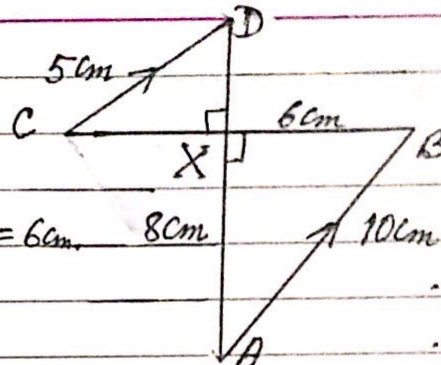 D
5cm
C
6cm
B
X
= 6cm.
8cm
10cm
A